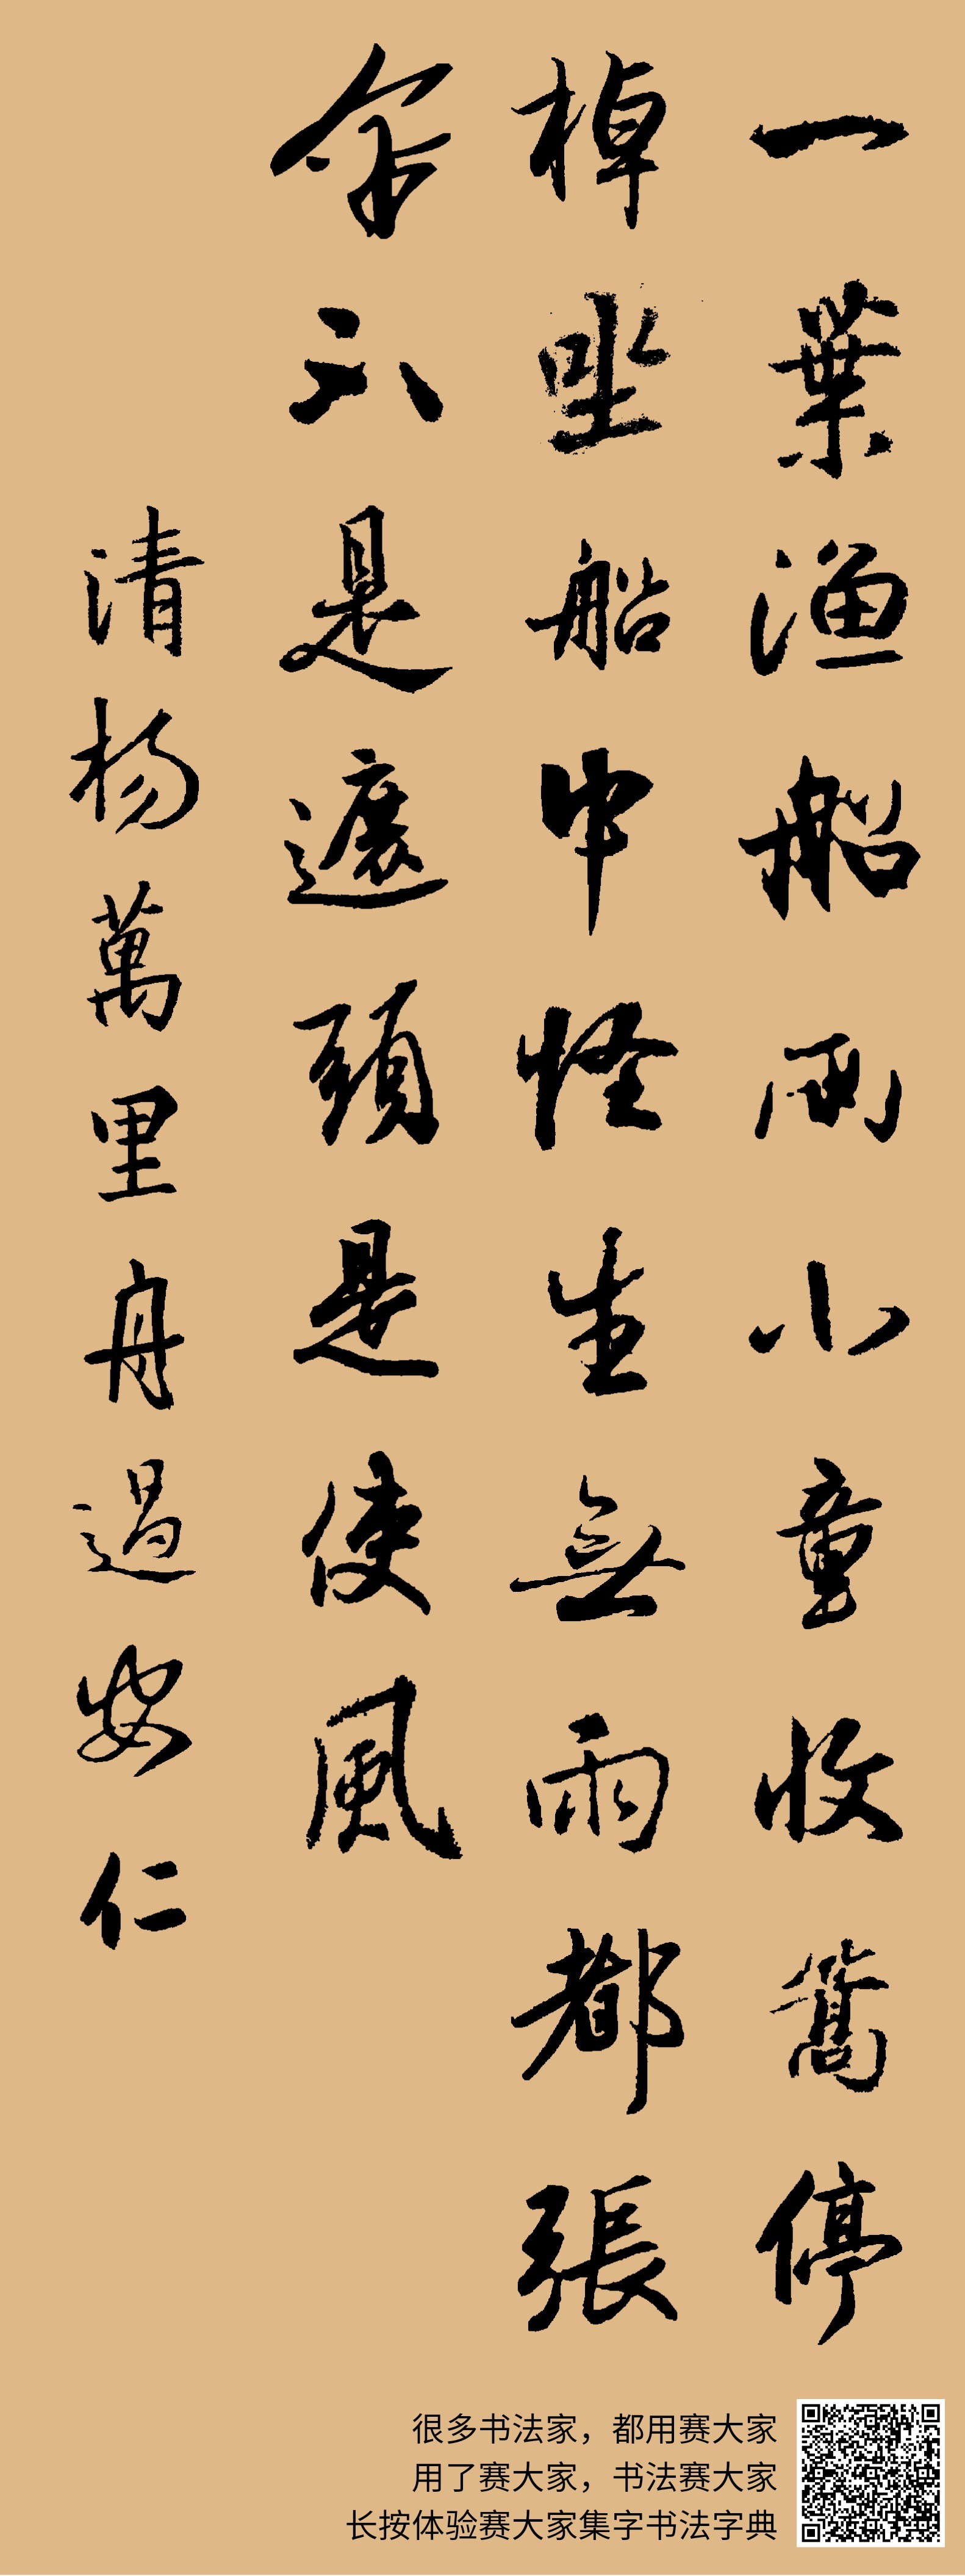 一葉渔船兩小童收篙停
棹坐船中怪生無雨都張
伞不是遮頭是使風
清杨萬里舟過安仁
很多书法家，都用赛大家
用了赛大家，书法赛大家
长按体验赛大家集字书法字典